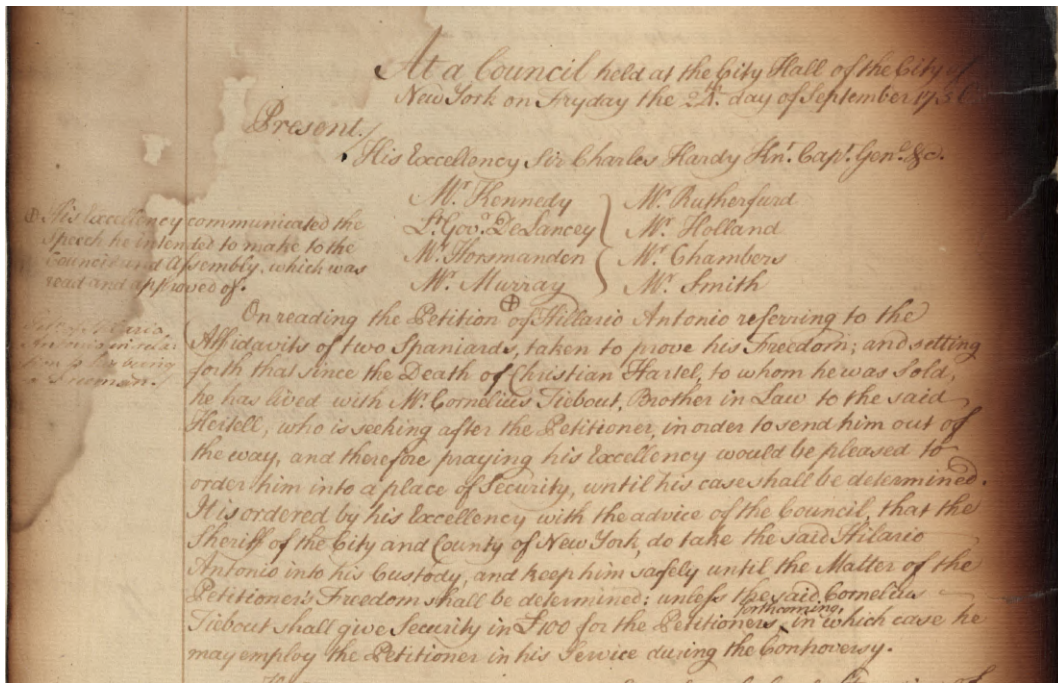 At a Council held at the City Hall of the City of
New York on Fryday the 24th. day of September 1756
Present.
His Excellency Sir Charles Hardy Knt. Capt. Genl. &c.
Mr. Kennedy
Lt. Govr. DeLancey
Mr. Horsmanden
Mr. Murray
Mr. Rutherfurd
Mr. Holland
Mr. Chambers
Mr. Smith
⊕ His Excellency communicated the
Speech he intended to make to the
Council and Assembly, which was
read and approved of.
⊕
On reading the Petition of Hillario Antonio referring to the
Affidavits of two Spaniards, taken to prove his Freedom; and setting
forth that since the Death of Christian Hartel, to whom he was Sold,
he has lived with Mr. Cornelius Tiebout, Brother in Law to the said
Hertell, who is seeking after the Petitioner, in order to send him out of
the way, and therefore praying his Excellency would be pleased to
order him into a place of Security, until his case shall be determined.
It is ordered by his Excellency with the advice of the Council, that the
Sheriff of the City and County of New York, do take the said Hilario
Antonio into his Custody, and keep him safely until the Matter of the
Petitioner's Freedom shall be determined: unless the said Cornelius
Tiebout shall give Security in £100 for the Petitioners forthcoming, in which case he
may employ the Petitioner in his Service during the Controversy.
being
a Freeman.